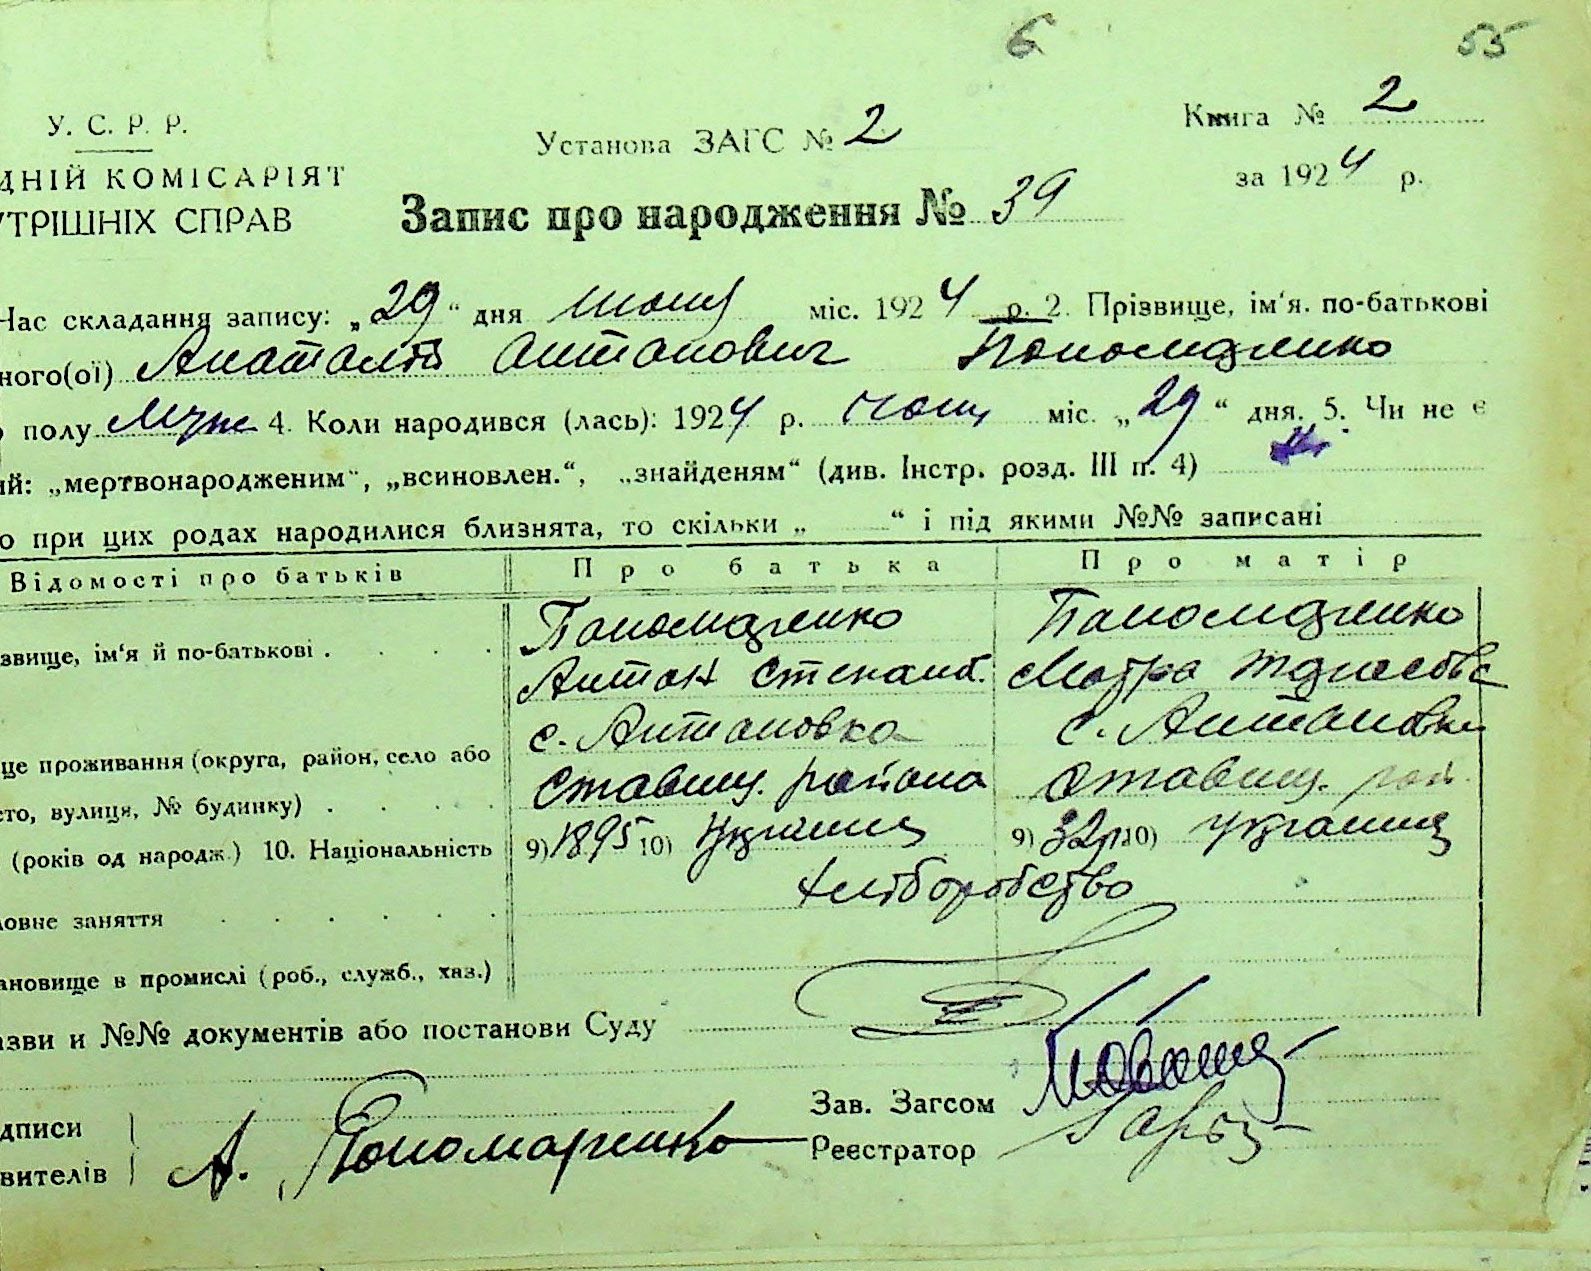 6 55
У. С. Р. Р.
Установа ЗАГС № 2
Книга № 2
ДНІЙ КОМІСАРІЯТ
за 1924 р.
УТРІШНІХ СПРАВ
Запис про народження № 39
Час складання запису: „29“ дня міс. 1924 р. 2. Прізвище, ім‘я. по-батькові
ного(ої) Антонович Пономаренко
полу Муж 4. Коли народився (лась): 1924 р. міс. „29“ дня. 5. Чи не є
ий: „мертвонародженим“, „всиновлен.“, „знайденям“ (див. Інстр. розд. III п. 4)
о при цих родах народилися близнята, то скільки „ “ і під якими №№ записані
Відомості про батьків Про батька Про матір
Пономаренко Пономаренко
звище, ім‘я й по-батькові . . . . Антон Степан. Мотра
с. Антоновка с. Антоновка
це проживання (округа, район, село або
Ставищ. района Ставищ. рай.
сто, вулиця, № будинку) . . . .
(років од народж.) 10. Національність 9) 1895 10) 9) 32 10)
Хліборобство
ловне заняття . . . . . .
ановище в промислі (роб., служб., хаз.)
азви и №№ документів або постанови Суду
Зав. Загсом
дписи
А. Пономаренко
Реєстратор
вителів